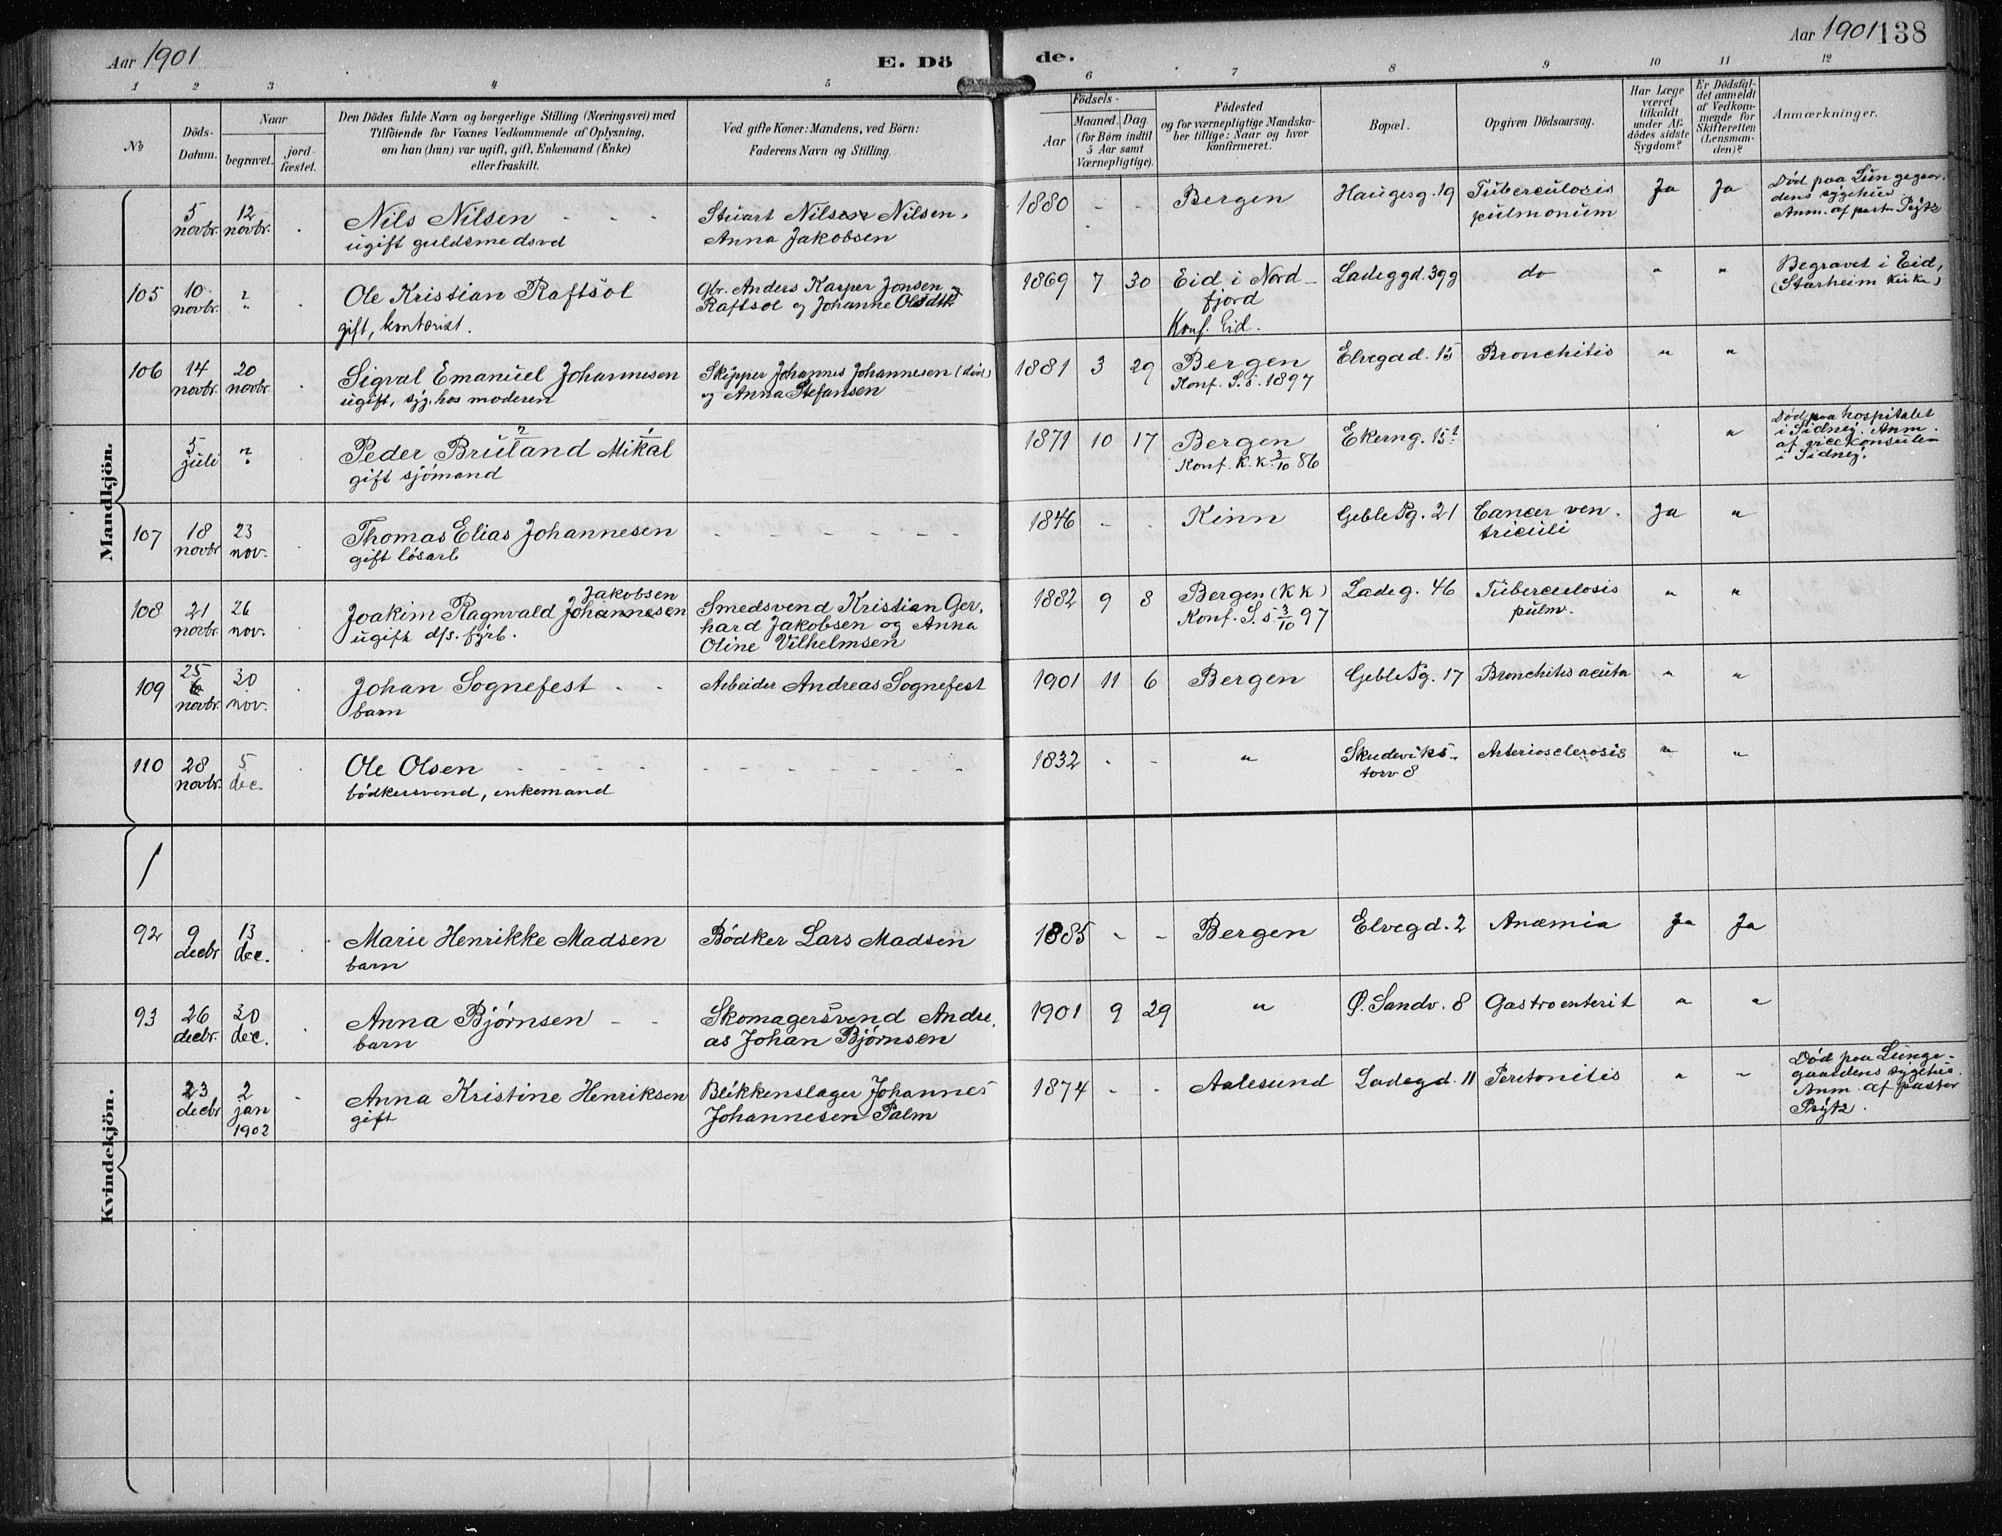 Aar 1901
E. Dö
de.
Aar 1901
138
1 2 3 4 5 6 7 8 9 10 11 12
No
Döds-Datum.
Naar
begravet.
jord-fæstet.
Den Dödes fulde Navn og borgerlige Stilling (Næringsvei) med
Tilföiende for Voxnes Vedkommende af Oplysning,
om han (hun) var ugift, gift, Enkemand (Enke)
eller fraskilt.
Ved gifte Koner: Mandens, ved Börn:
Faderens Navn og Stilling.
Födsels-
Aar
Maaned. Dag.
(for Börn indtil
5 Aar samt
Værnepligtige).
Födested
og for værnepligtige Mandska-
ber tillige: Naar og hvor
konfirmeret.
Bopæl.
Opgiven Dödsaarsag.
Har Læge
været
tilkaldt
under Af-
dödes sidste
Sygdom?
Er Dödsfal-
det anmeldt
af Vedkom-
mende for
Skifteretten
(Lensman-
den)?
Anmærkninger.
Mandkjön.
5 novbr. 12 novbr.
Nils Nilsen
ugift guldsmedsvd
Stuart Nilsen Nilsen.
Anna Jakobsen
1880 - - Bergen
Haugesg. 19
Tuberculosis
pulmonum
Ja Ja
Død paa Lungegaar-
dens sygehus
Anm. af past. Prytz
105 10 novbr. ?
Ole Kristian Raftsol
gift, kontorist.
Gbr. Anders Kasper Jonsen
Raftsol og Johanne Olsdtr
1869 7 30 Eid i Nord-
fjord
Konf. Eid.
Ladeggd. 39g
do " "
Begravet i Eid,
(Starheim kirke)
106 14 novbr. 20 novbr.
Sigval Emanuel Johannesen
ugift, syg. hos moderen
Skipper Johannes Johannesen (död)
og Anna Stefansen
1881 3 29 Bergen
Konf. S. s. 1897
Elvegad. 15
Bronchitis " "
5 juli ?
Peder Bruland Mikal
gift sjömand
1871 10 17 Bergen
Konf. K. k. 3/10 86
Ekerng. 15
"
Død paa hospitalet
i Sidney. Anm.
af vicekonsulen
i Sidney.
107 18 novbr 23 nov.
Thomas Elias Johannesen
gift lösarb
- - - - - -
1846 - - Kinn
Geble Pg. 21
Cancer ven-
triculi
Ja "
108 21 novbr. 26 nov.
Jakobsen
Joakim Ragnvald Johannesen
ugift d/s. fyrb.
Smedsvend Kristian Ger-
hard Jakobsen og Anna
Oline Vilhelmsen
1882 9 8 Bergen (K k)
Konf. S. s. 3/10 97
Ladeg. 46
Tuberculosis
pulm.
" "
109 25 novbr. 30 nov.
Johan Sognefest
barn
Arbeider Andreas Sognefest
1901 11 6 Bergen
Geble Pg. 17
Bronchitis acuta " "
110 28 novbr. 5 dec.
Ole Olsen
bödkersvend, enkemand
- - - - - -
1832 - - "
Skudeviks-
torv 8
Arteriosclerosis " "
Kvindekjön.
92 9 decbr 13 dec.
Marie Henrikke Madsen
barn
Bødker Lars Madsen
1885 - - Bergen
Elvegd. 2
Anæmia
Ja Ja
93 26 decbr. 30 dec.
Anna Bjørnsen
barn
Skomagersvend Andre-
as Johan Bjørnsen
1901 9 29 "
Ø. Sandv. 8
Gastroenterit " "
23 decbr 2 jan 1902
Anna Kristine Henriksen
gift
Blikkenslager Johannes
Johannesen Palm
1874 - - Aalesund
Ladegd. 11
Peritonitis " "
Død paa Lunge-
gaardens sygehus.
Anm. af pastor
Prytz.